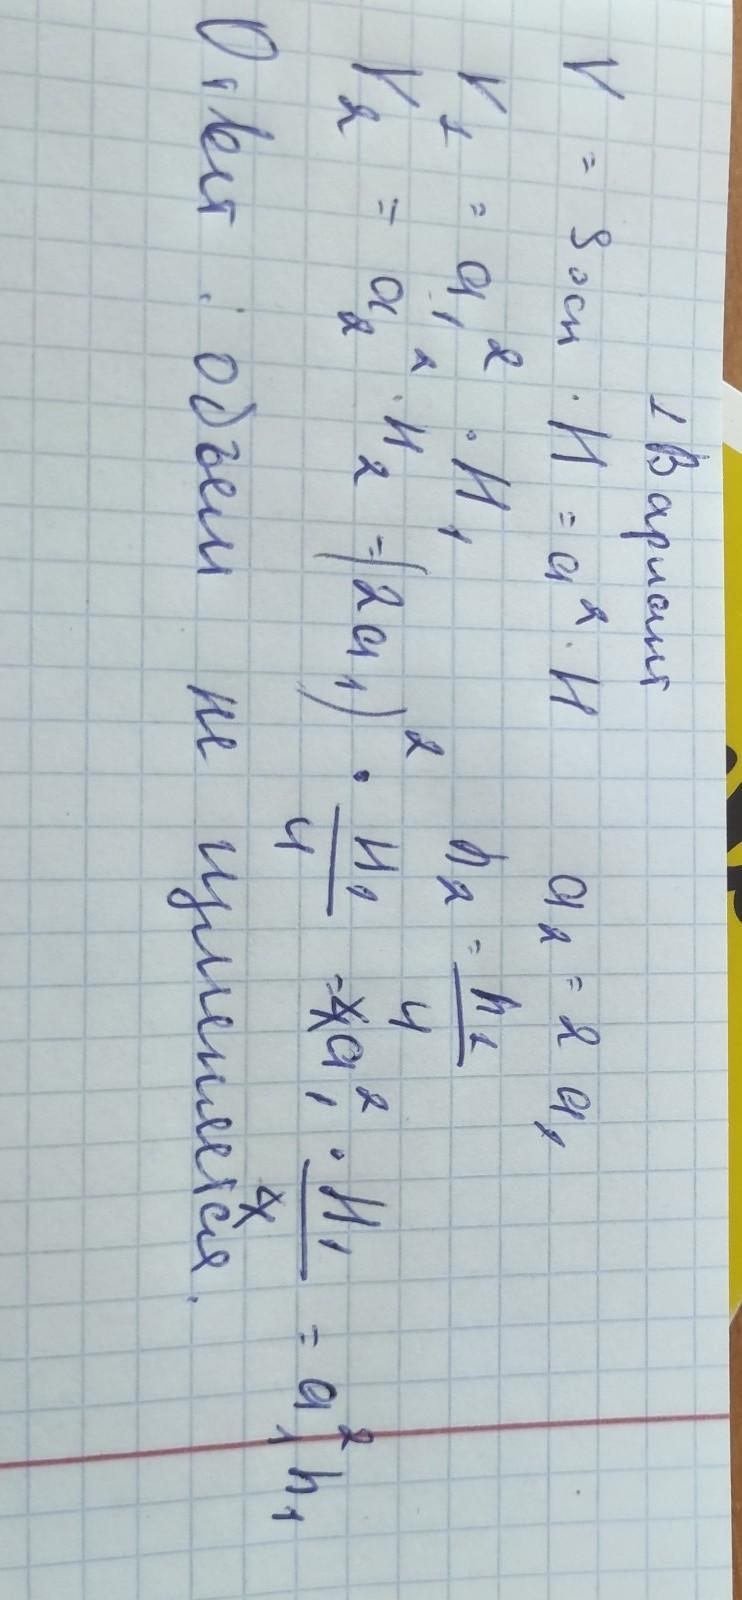 1 Вариант
V = Sосн · H = a² · H    a₂ = 2a₁
V₁ = a₁² · H₁    h₂ = h₁/4
V₂ = a₂² · H₂ = (2a₁)² · H₁/4 = 4a₁² · H₁/4 = a₁²h₁
Ответ : объем не изменяется.